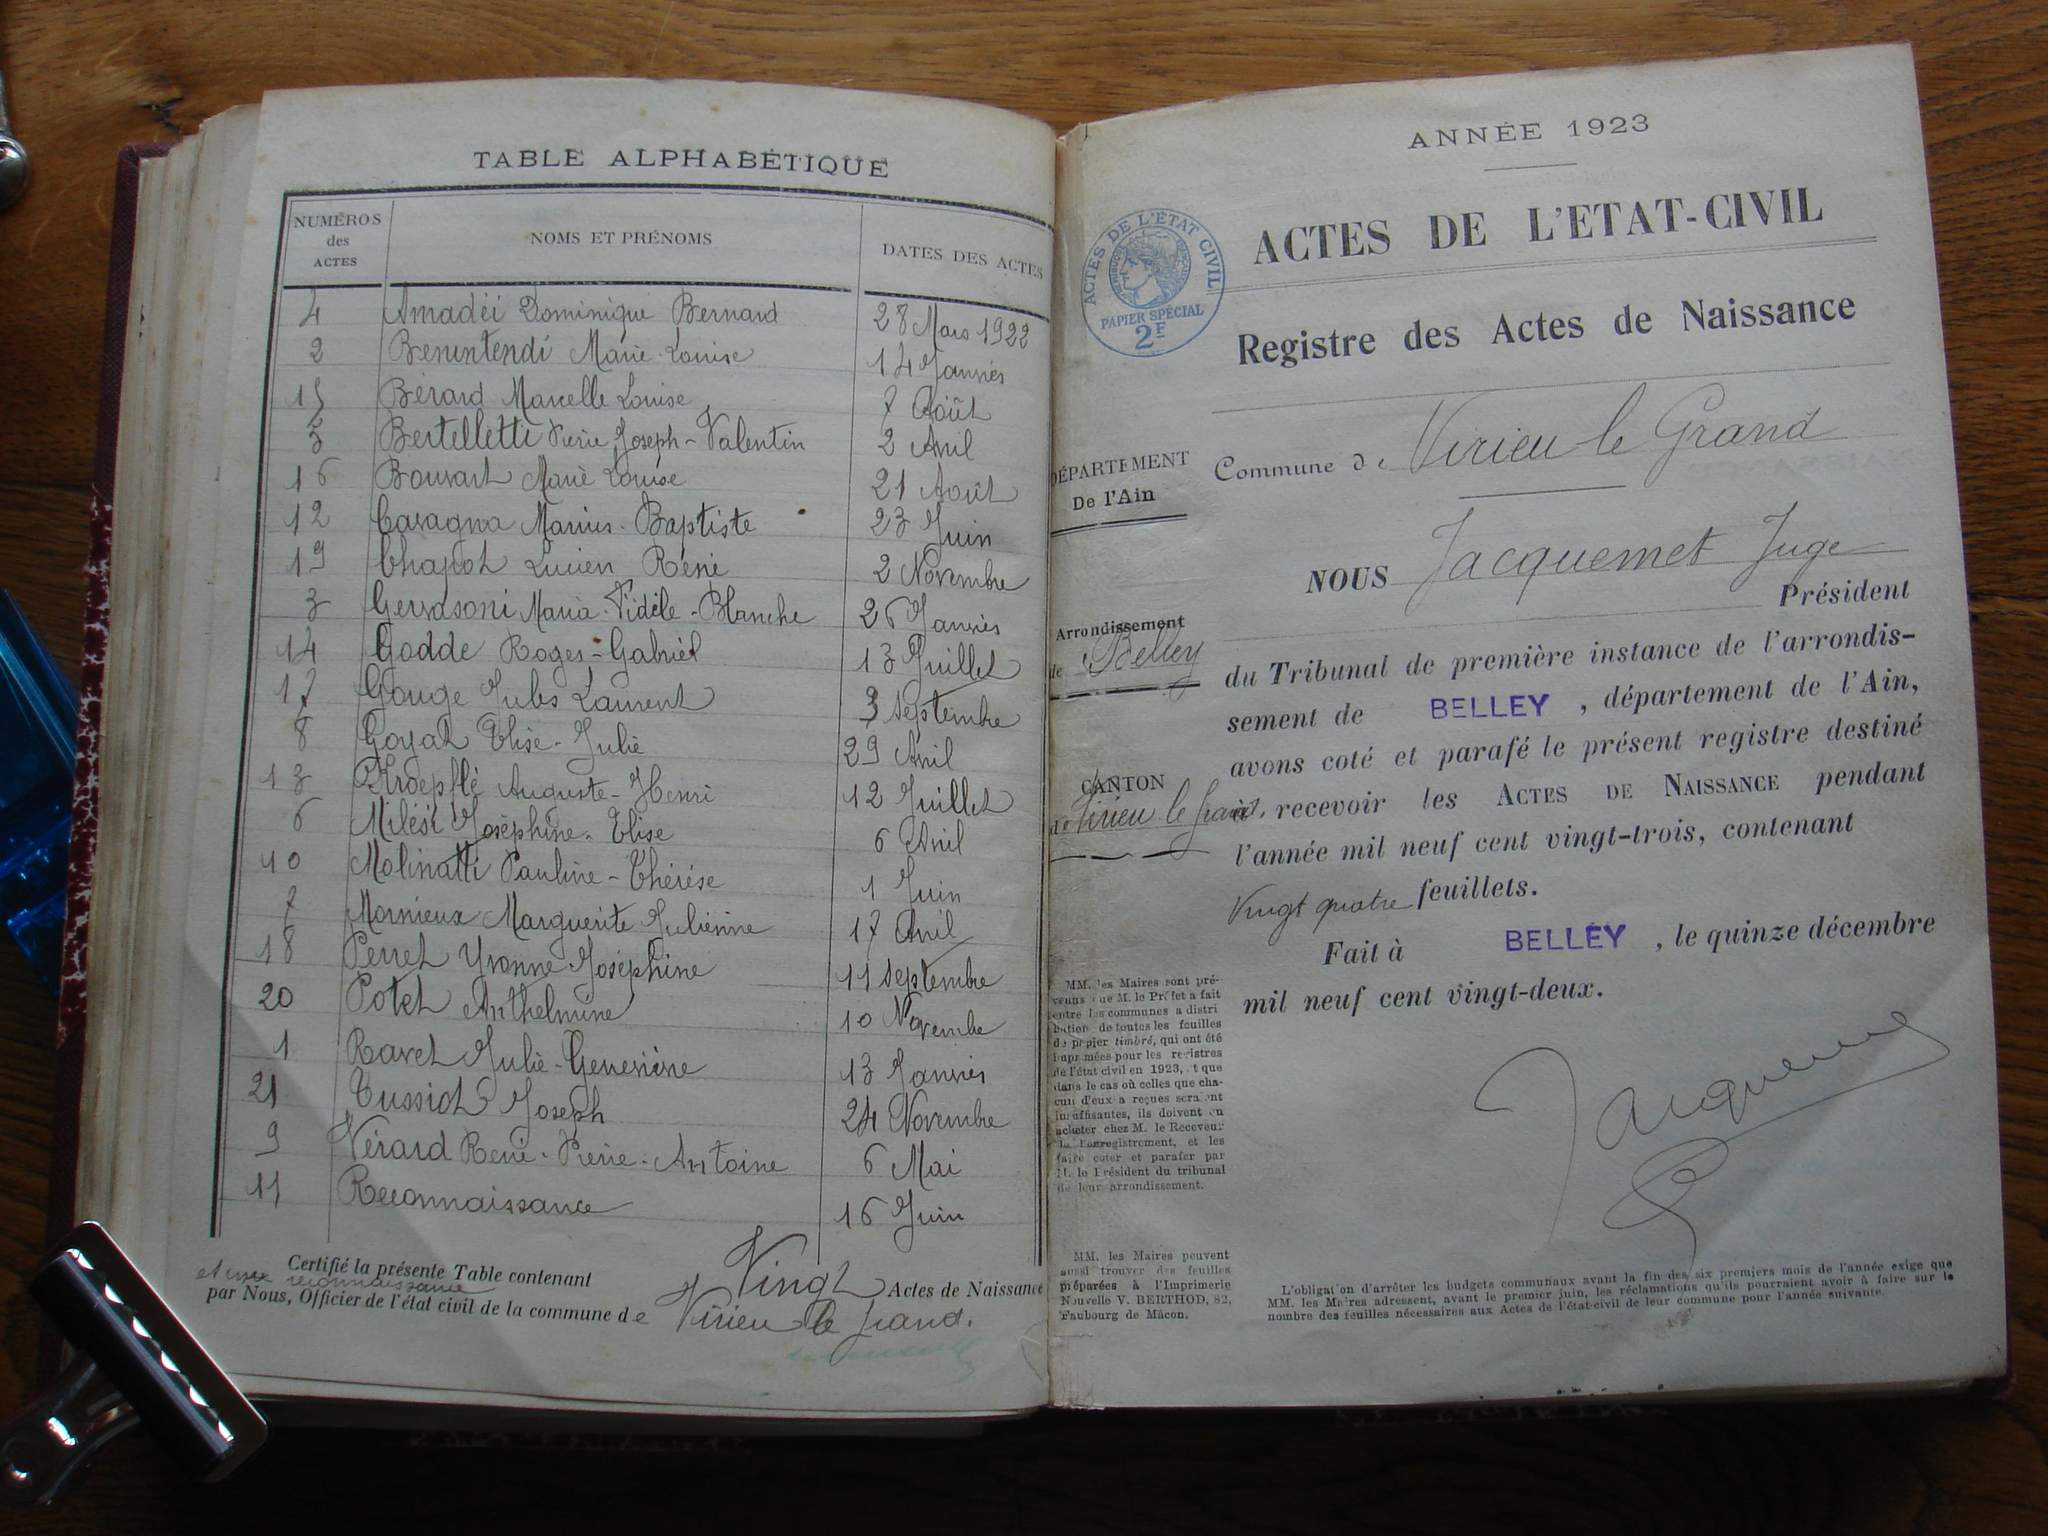 TABLE ALPHABÉTIQUE
NUMÉROS des ACTES NOMS ET PRÉNOMS DATES DES ACTES
4 Amadéi Dominique Bernard 28 Mars 1922
2 Benintendi Marie-Louise 14 Janvier
15 Bérard Marcelle Louise 7 Août
5 Bertelletti Pierre Joseph-Valentin 2 Avril
16 Bouvart Marie Louise 21 Août
12 Cavagna Marius-Baptiste 23 Juin
19 Chapot Lucien René 2 Novembre
3 Gervasoni Maria-Fidèle-Blanche 26 Janvier
14 Godde Roger-Gabriel 13 Juillet
17 Gouge Jules Laurent 3 Septembre
8 Goyat Elise-Julie 29 Avril
13 Kroepflé Auguste-Henri 12 Juillet
6 Milési Joséphine-Elise 6 Avril
10 Molinatti Pauline-Thérèse 1 Juin
7 Mornieux Marguerite Julienne 17 Avril
18 Perret Yvonne-Joséphine 11 Septembre
20 Potet Anthelmine 10 Novembre
1 Ravet Julie-Geneviève 13 Janvier
21 Tussiot Joseph 24 Novembre
9 Vérard René-Pierre-Antoine 6 Mai
11 Reconnaissance 16 Juin
Certifié la présente Table contenant Vingt Actes de Naissance
et une reconnaissance
par Nous, Officier de l'état civil de la commune de Virieu le Grand.
ANNÉE 1923
ACTES DE L'ÉTAT CIVIL
RÉPUBLIQUE FRANÇAISE
PAPIER SPÉCIAL
2F
ACTES DE L'ETAT-CIVIL
Registre des Actes de Naissance
DÉPARTEMENT
De l'Ain
Arrondissement
de Belley
CANTON
de Virieu le Grand
Commune de Virieu le Grand
NOUS Jacquemet Juge
Président
du Tribunal de première instance de l'arrondis-
sement de BELLEY, département de l'Ain,
avons coté et parafé le présent registre destiné
à recevoir les ACTES DE NAISSANCE pendant
l'année mil neuf cent vingt-trois, contenant
Vingt quatre feuillets.
Fait à BELLEY, le quinze décembre
mil neuf cent vingt-deux.
Jacquemet
MM. les Maires sont pré-
venus que M. le Préfet a fait
entre les communes a distri
bution de toutes les feuilles
de papier timbré, qui ont été
imprimées pour les registres
de l'état civil en 1923, et que
dans le cas où celles que cha-
cun d'eux a reçues seraient
insuffisantes, ils doivent en
acheter chez M. le Receveur
de l'enregistrement, et les
faire coter et parafer par
M. le Président du tribunal
de leur arrondissement.
MM. les Maires peuvent
aussi trouver des feuilles
préparées à l'Imprimerie
Nouvelle V. BERTHOD, 82,
Faubourg de Mâcon.
L'obligation d'arrêter les budgets communaux avant la fin des six premiers mois de l'année exige que
MM. les Maires adressent, avant le premier juin, les réclamations qu'ils pourraient avoir à faire sur le
nombre des feuilles nécessaires aux Actes de l'état-civil de leur commune pour l'année suivante.